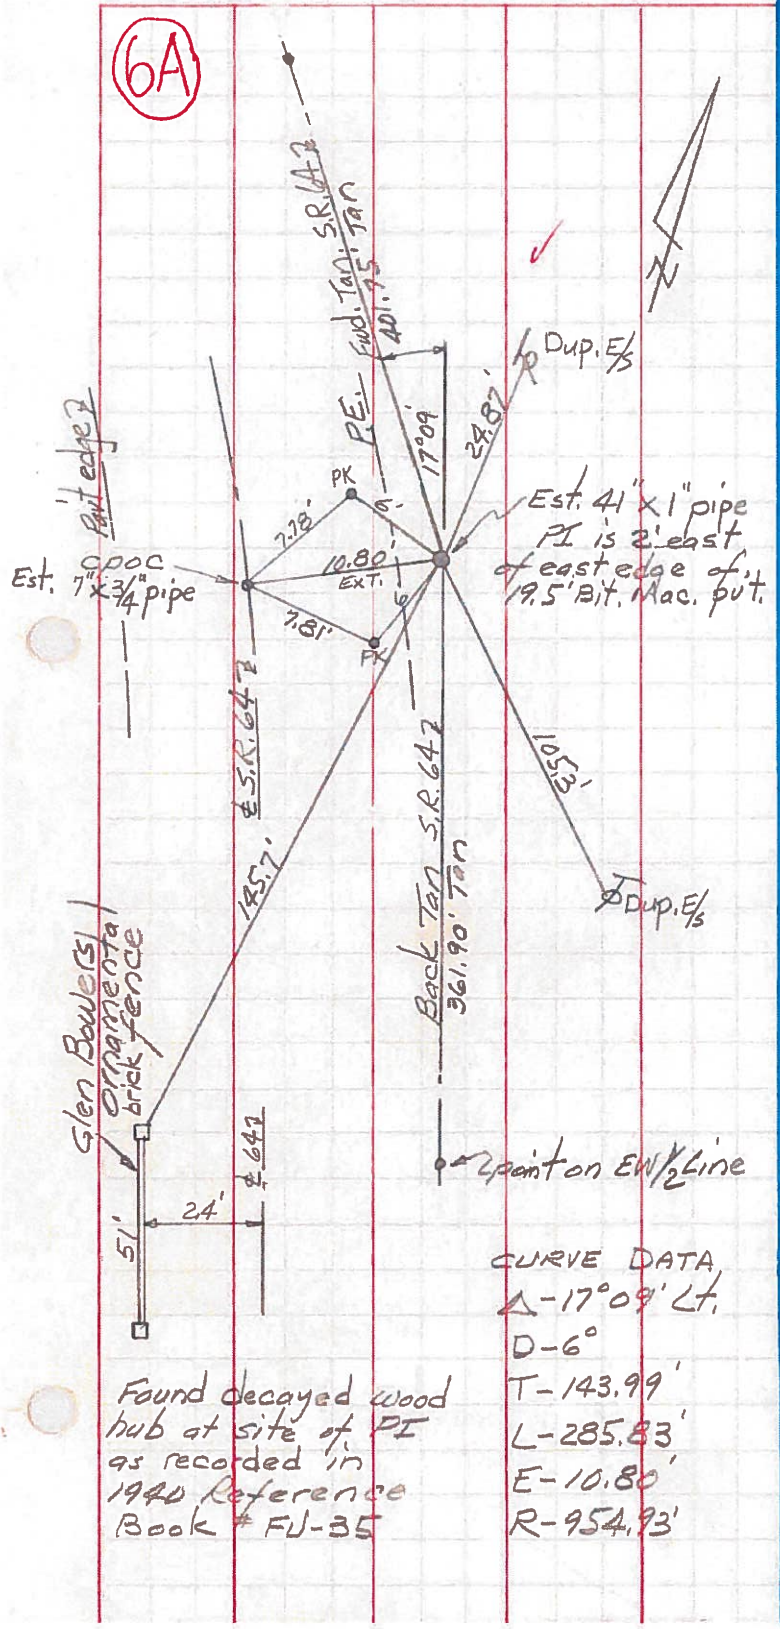 6A
Fwd. Tan. S.R. 647
401.75' Tan
N
P.E.
17°09'
24.87'
Dup. E/s
Pav't edge
PK
7.78'
9.
Est. 41" x 1" pipe
PI is 2' east
of east edge of
19.5' Bit. Mac. pvt.
CPOC
Est. 7" x 3/4" pipe
10.80'
EXT.
7.81'
PK
6
℄ S.R. 647
105.3'
145.7'
Back Tan S.R. 647
361.90' Tan
Dup. E/s
Glen Bowers
Ornamental
brick fence
℄ 647
point on EW 1/2 Line
24'
51'
CURVE DATA
Δ-17°09' Lt.
D-6°
T-143.99'
L-285.83'
E-10.80'
R-954.93'
Found decayed wood
hub at site of PI
as recorded in
1940 Reference
Book # FU-35